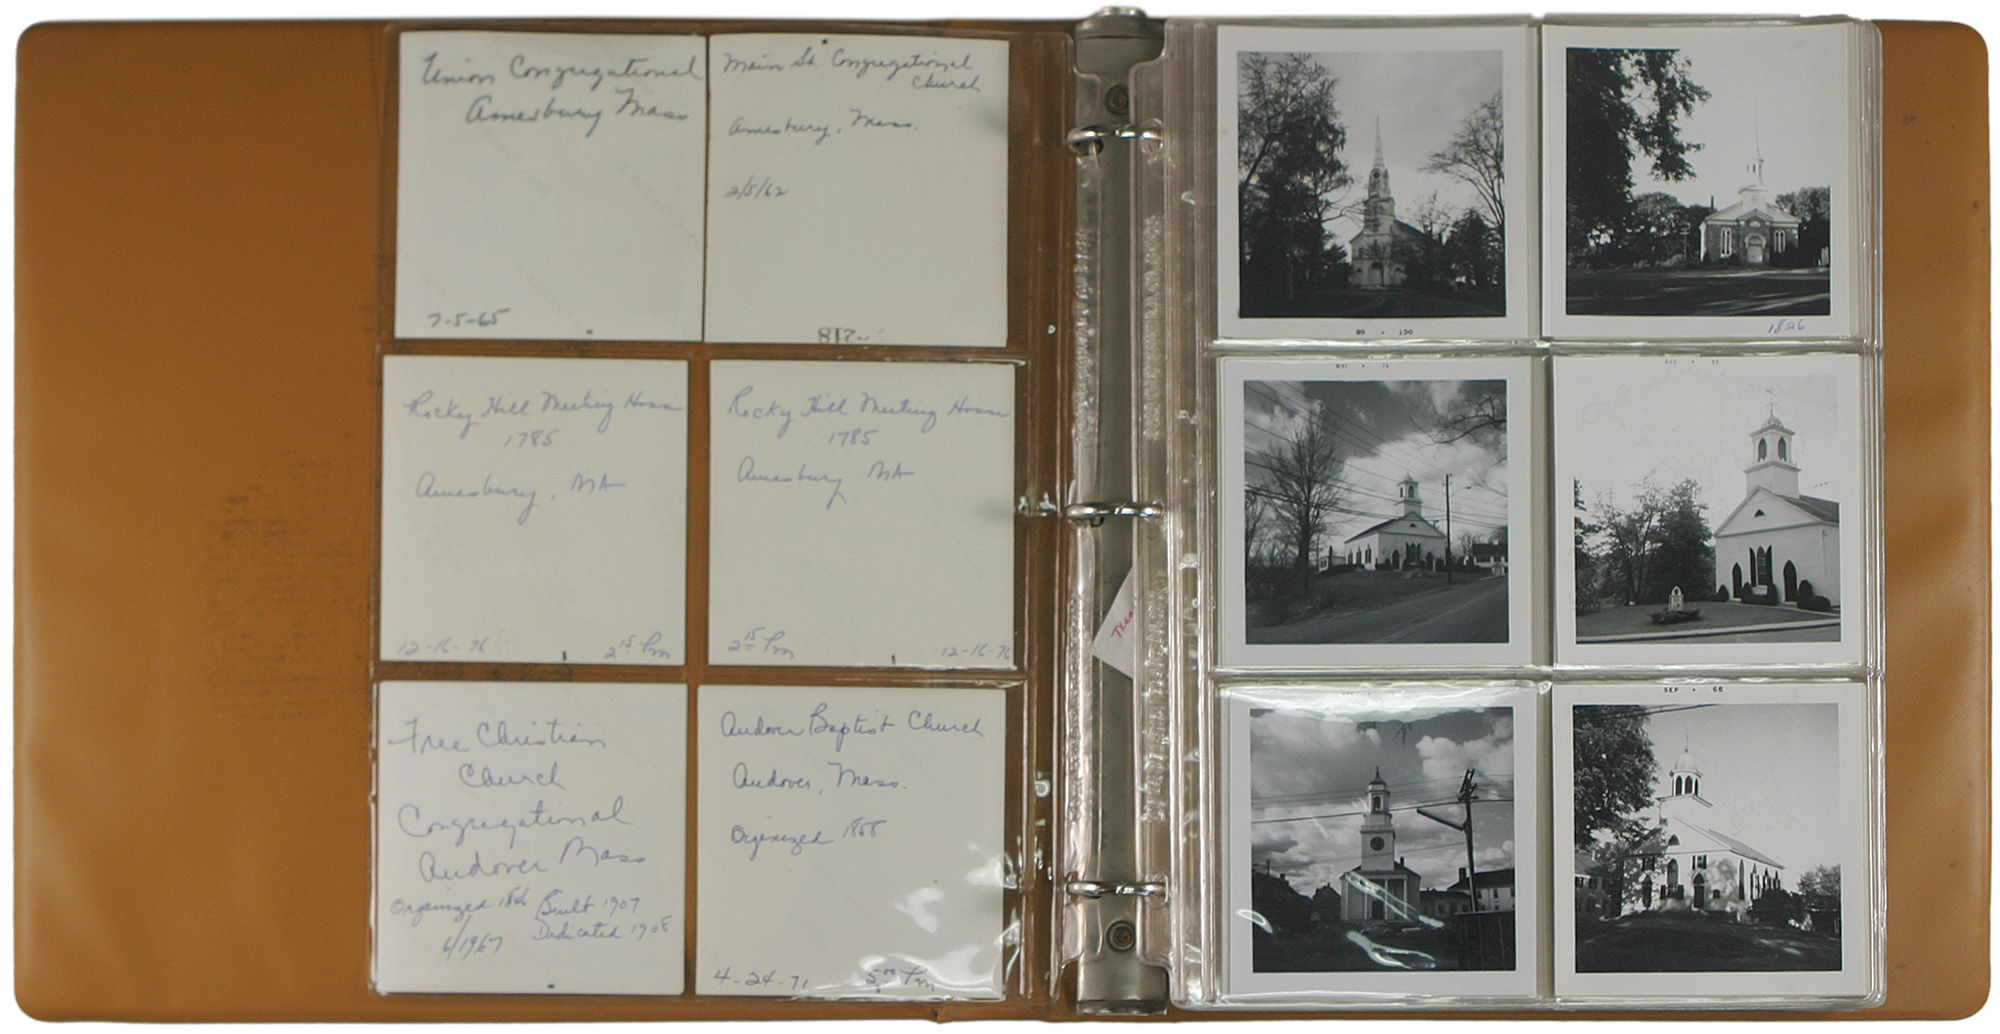 Union Congregational
Amesbury Mass
7-5-65
Main St. Congregational
Church
Amesbury, Mass.
2/5/62
218
Rocky Hill Meeting House
1785
Amesbury, MA
12-16-76
2 15 Pm
Rocky Hill Meeting House
1785
Amesbury MA
2 15 Pm
12-16-76
Free Christian
Church
Congregational
Andover Mass
Organized 1846 Built 1907
6/1967 Dedicated 1908
Andover Baptist Church
Andover, Mass.
Organized 1858
4-24-71
5 00 Pm
OCT • 68
1826
MAY • 74
SEP • 66